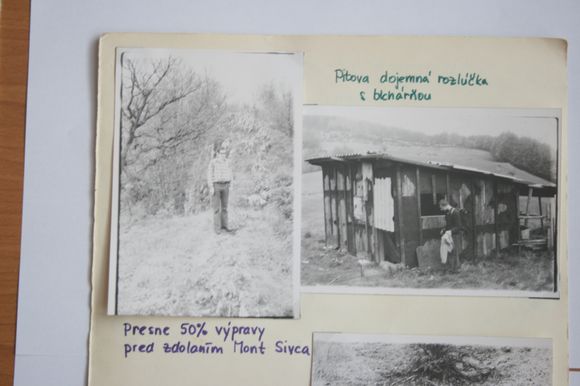 Piťova dojemná rozlúčka
s blchárňou
Presne 50% výpravy
pred zdolaním Mont Sivca